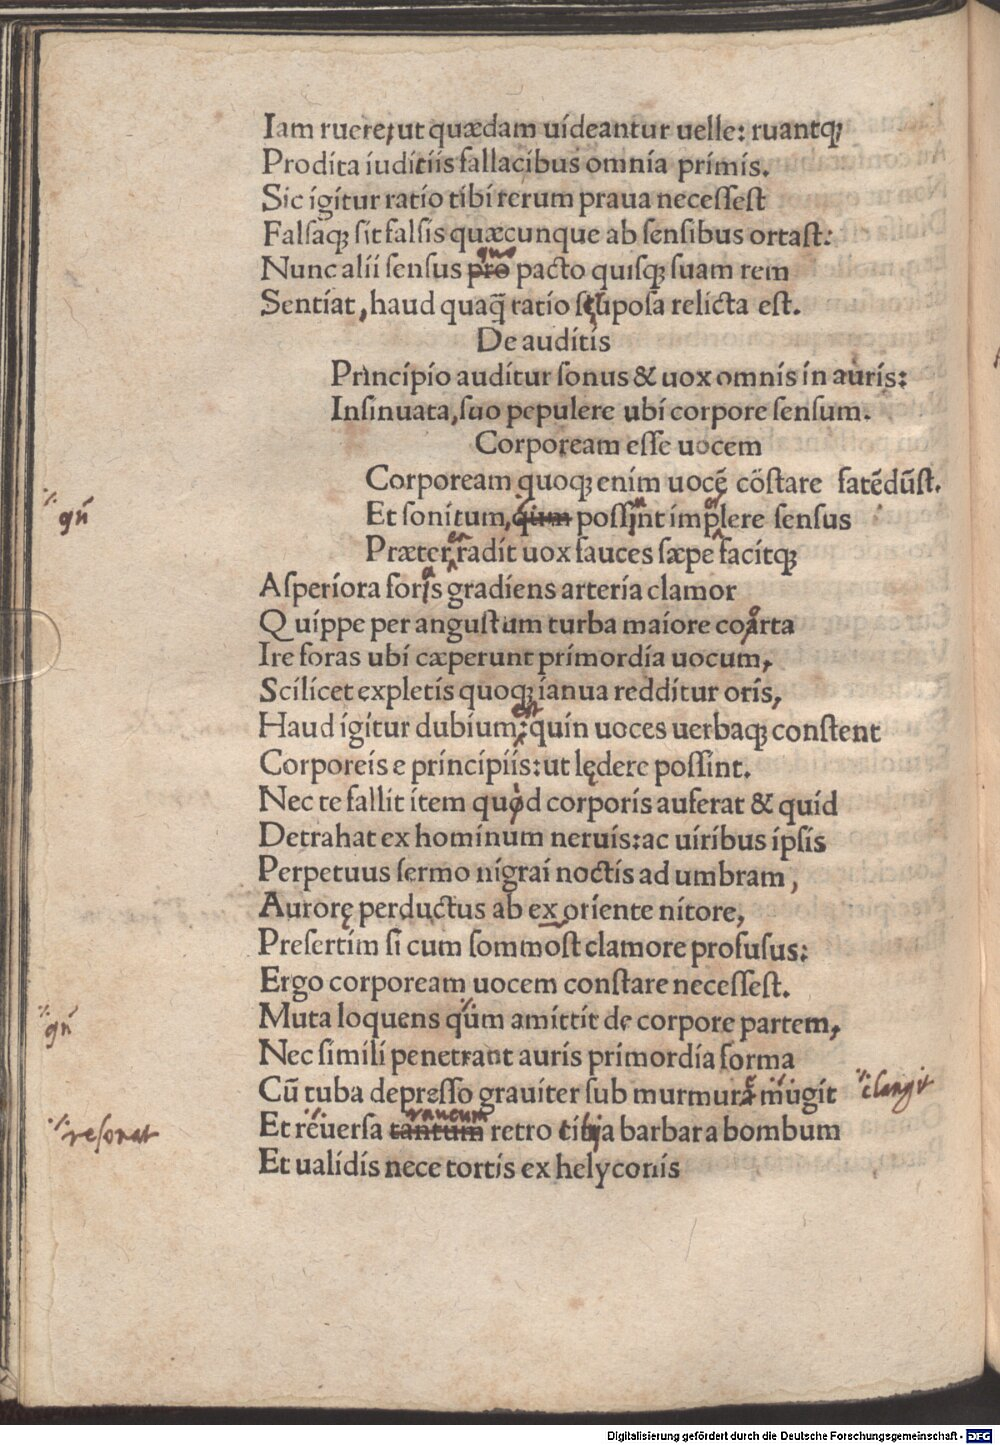 Iam ruere, ut quædam uideantur uelle: ruantq;
Prodita iuditiis fallacibus omnia primis.
Sic igitur ratio tibi rerum praua necessest
Falsaq; sit falsis quæcunque ab sensibus ortast:
quo
Nunc alii sensus pro pacto quisq; suam rem
Sentiat, haud quaq̄ ratio scruposa relicta est.
De auditis
Principio auditur sonus & uox omnis in auris:
Insinuata, suo pepulere ubi corpore sensum.
Corpoream esse uocem
Corpoream quoq; enim uocē cōstare fatēdūst.
qn̄
Et sonitum, qūm possint implere sensus
Præter radit uox fauces sæpe facitq;
Asperiora foris gradiens arteria clamor
Quippe per angustum turba maiore coarta
Ire foras ubi cæperunt primordia uocum,
Scilicet expletis quoq; ianua redditur oris,
est
Haud igitur dubium: quin uoces uerbaq; constent
Corporeis e principiis: ut lędere possint.
Nec te fallit item quod corporis auferat & quid
Detrahat ex hominum neruis: ac uiribus ipsis
Perpetuus sermo nigrai noctis ad umbram,
Aurorę perductus ab ex oriente nitore,
Presertim si cum sommost clamore profusus:
Ergo corpoream uocem constare necessest.
qn̄
Muta loquens qūm amittit de corpore partem,
Nec simili penetrant auris primordia forma
Cū tuba depresso grauiter sub murmura mugit clangit
resonat
raucum
Et reuersa tantum retro tibia barbara bombum
Et ualidis nece tortis ex helyconis
Digitalisierung gefördert durch die Deutsche Forschungsgemeinschaft - DFG